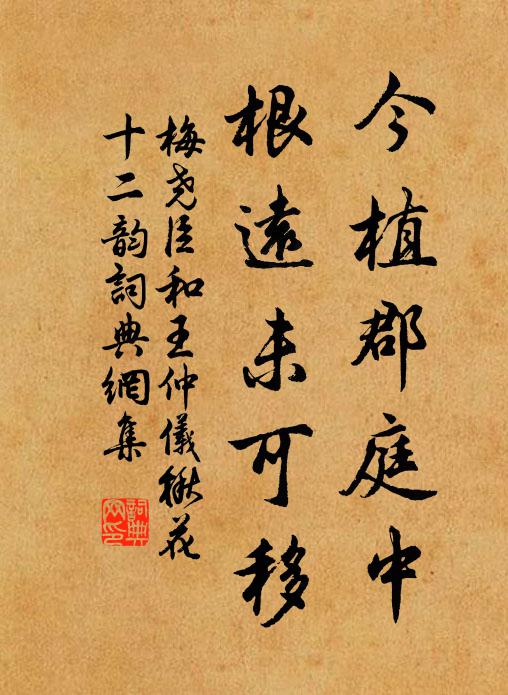 今植郡庭中
根遠未可移
梅尧臣和王仲儀楸花
十二韵詞典網集
詞典网印